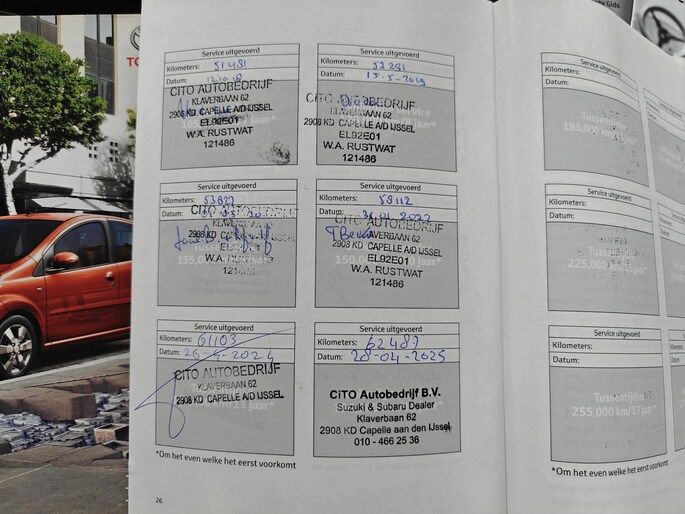 Service uitgevoerd
Kilometers: 51481
Datum: 12.10.18
CITO AUTOBEDRIJF
KLAVERBAAN 62
2908 KD CAPELLE A/D IJSSEL
EL92E01
W.A. RUSTWAT
121486
Service uitgevoerd
Kilometers:
Datum: 15-5-2019
CITO AUTOBEDRIJF
KLAVERBAAN 62
2908 KD CAPELLE A/D IJSSEL
EL92E01
W.A. RUSTWAT
121486
Service uitgevoerd
Kilometers:
Datum:
CITO AUTOBEDRIJF
KLAVERBAAN 62
2908 KD CAPELLE A/D IJSSEL
EL92E01
W.A. RUSTWAT
Service uitgevoerd
Kilometers: 59112
Datum: 2022
CITO AUTOBEDRIJF
KLAVERBAAN 62
2908 KD CAPELLE A/D IJSSEL
EL92E01
W.A. RUSTWAT
121486
Service uitgevoerd
Kilometers: 61103
Datum: 26-4-2024
CITO AUTOBEDRIJF
KLAVERBAAN 62
2908 KD CAPELLE A/D IJSSEL
Service uitgevoerd
Kilometers: 62487
Datum: 28-04-2025
CITO Autobedrijf B.V.
Suzuki & Subaru Dealer
Klaverbaan 62
2908 KD Capelle aan den IJssel
010 - 466 25 36
*Om het even welke het eerst voorkomt
26
Service uitgevoerd
Kilometers:
Datum:
195,000 km/13 jaar*
Service uitgevoerd
Kilometers:
Datum:
225,000 km/15 jaar*
Service uitgevoerd
Kilometers:
Datum:
Tussentijdse
255,000 km/17 jaar*
*Om het even welke het eerst voorkomt